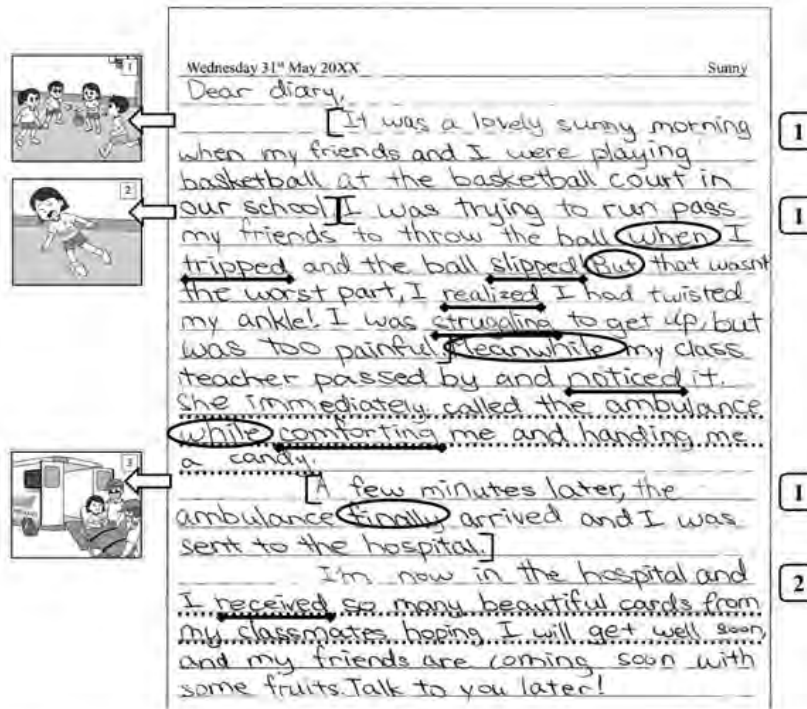 Wednesday 31st May 20XX Sunny
Dear diary,
1
It was a lovely sunny morning
1
when my friends and I were playing
basketball at the basketball court in
2
our school. I was trying to run pass
1
my friends to throw the ball when I
tripped and the ball slipped! But that wasnt
the worst part, I realized I had twisted
my ankle! I was struggling to get up, but
was too painful. Meanwhile my class
teacher passed by and noticed it.
She immediately called the ambulance
while comforting me and handing me
a candy.
3
A few minutes later, the
1
ambulance finally arrived and I was
sent to the hospital.
I'm now in the hospital and
2
I received so many beautiful cards from
my classmates hoping I will get well soon,
and my friends are coming soon with
some fruits. Talk to you later!